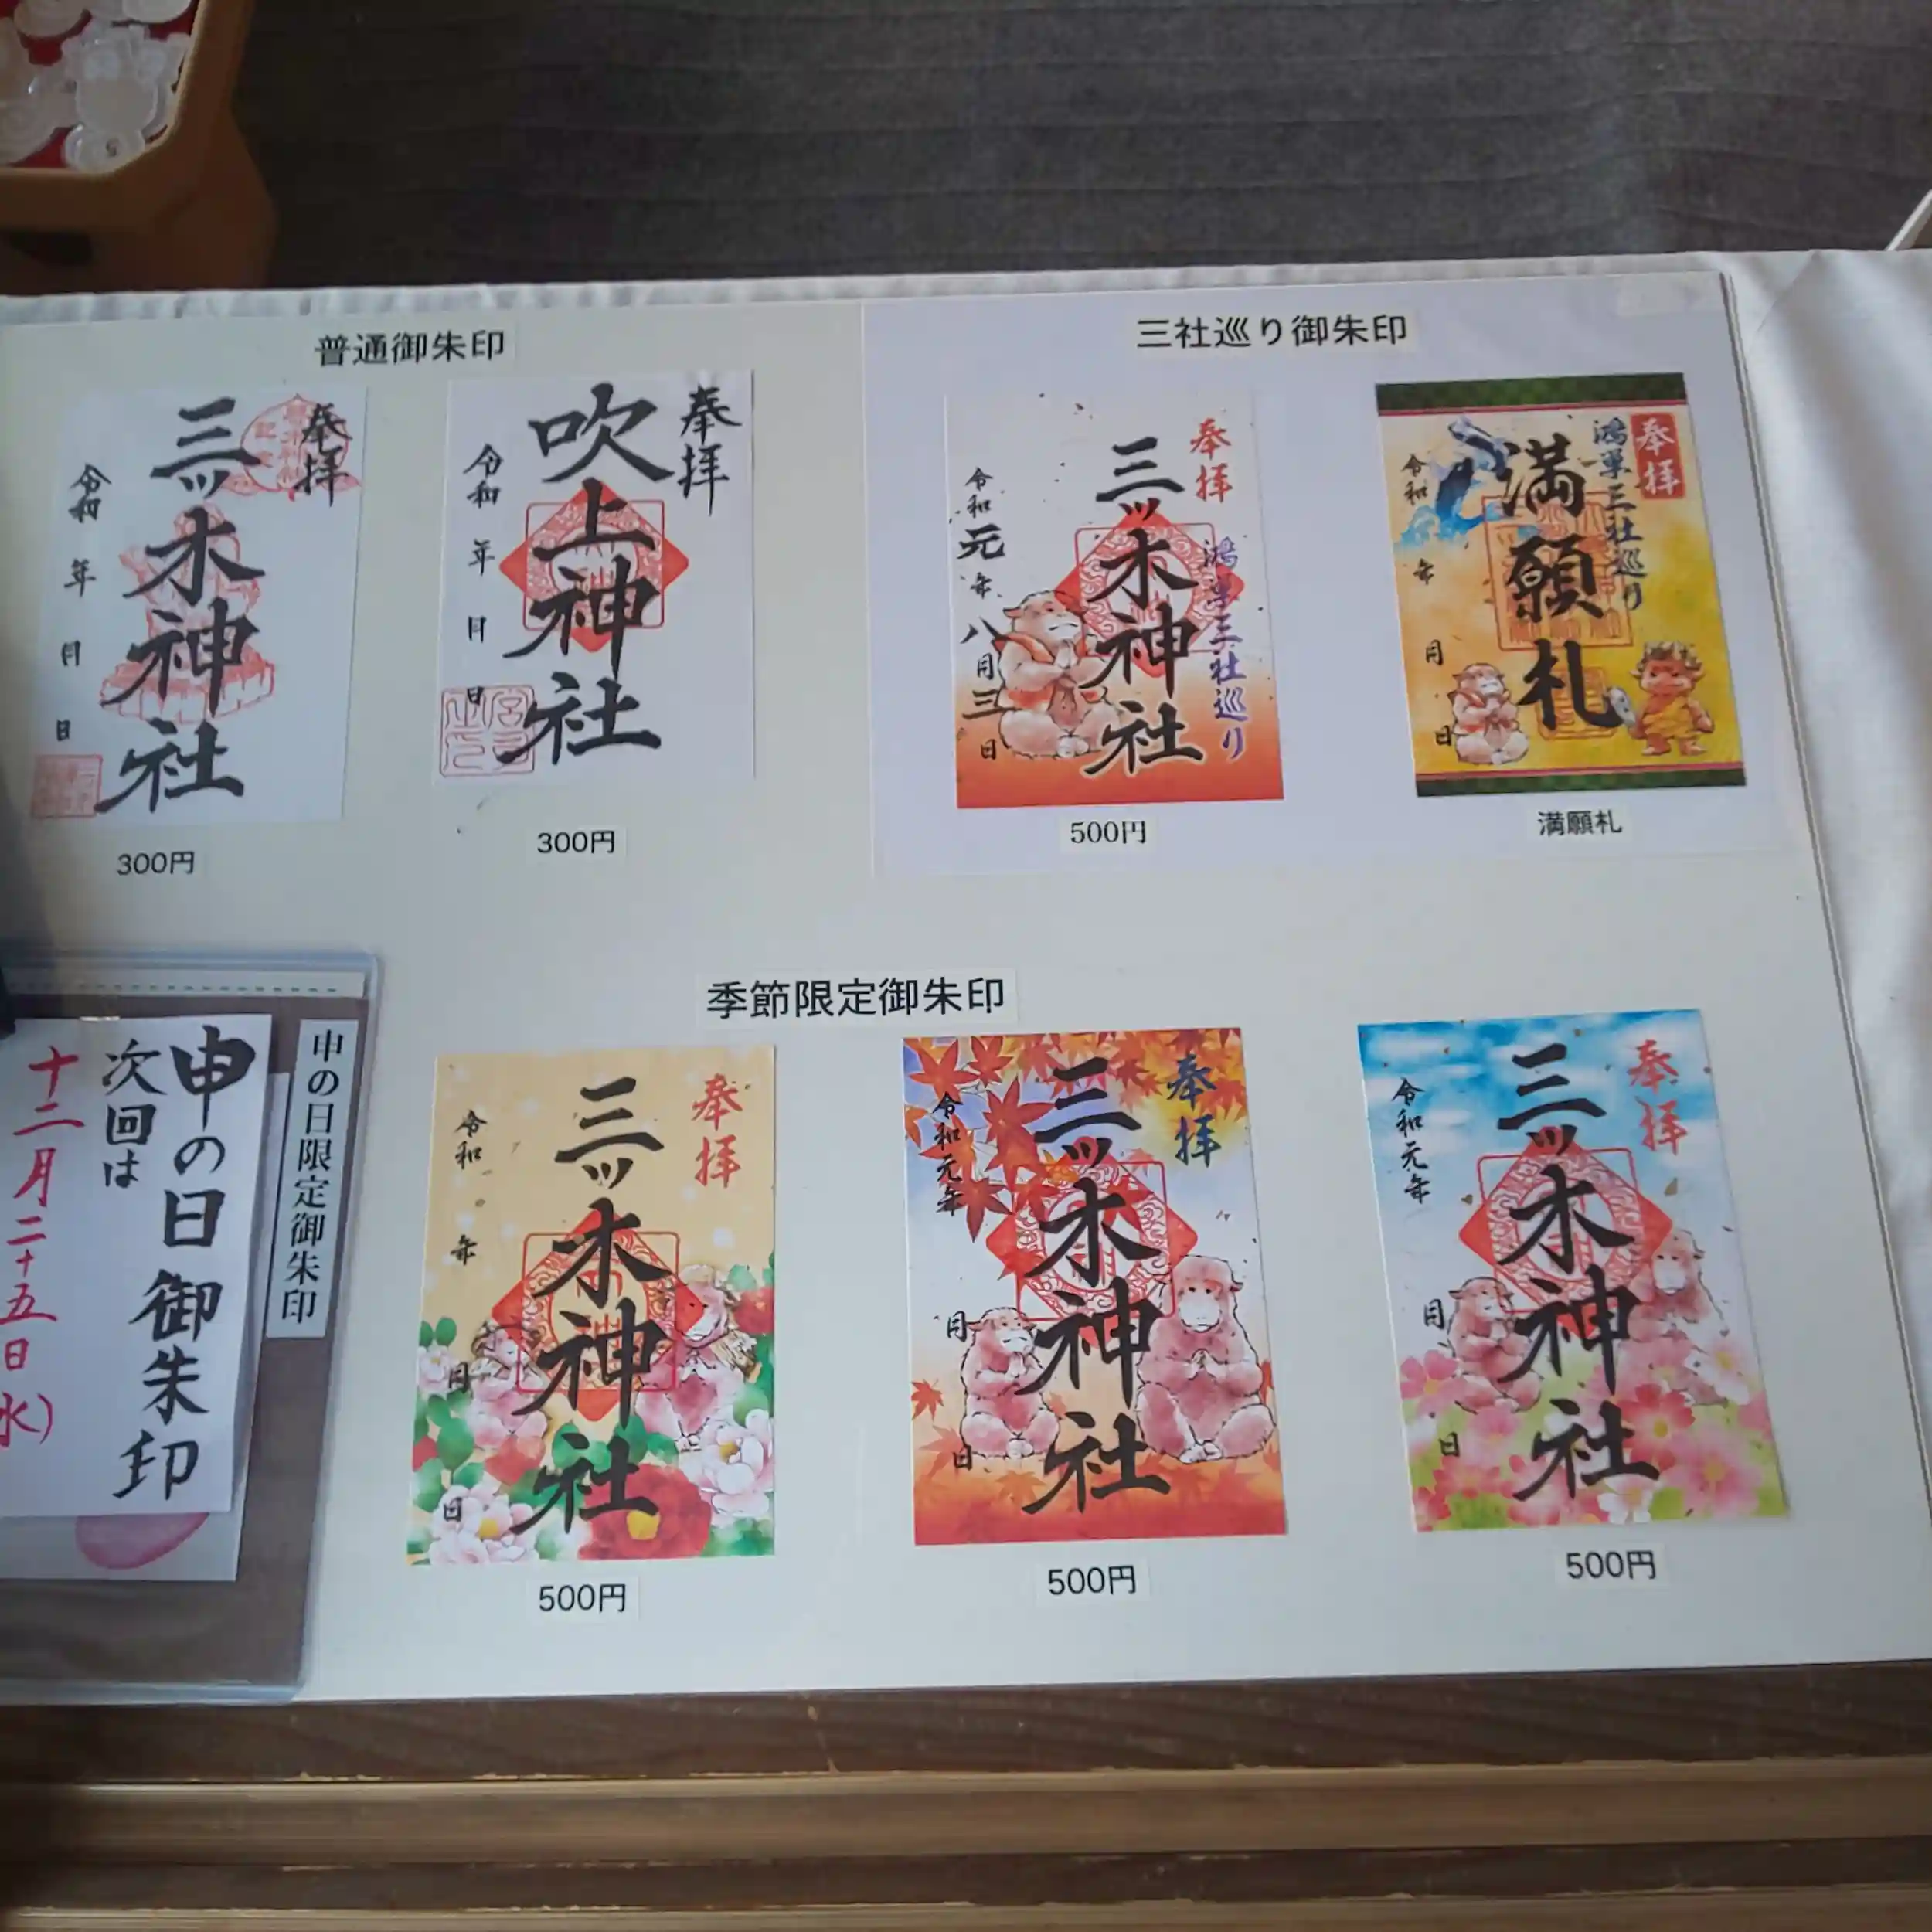 普通御朱印
奉拝
三ッ木神社
令和 年 月 日
300円
奉拝
吹上神社
令和 年 月 日
300円
三社巡り御朱印
奉拝
鴻巣三社巡り
三ッ木神社
令和元年八月三日
500円
奉拝
鴻巣三社巡り
満願札
令和 年 月 日
満願札
申の日限定御朱印
申の日御朱印
次回は
十二月二十五日(水)
季節限定御朱印
奉拝
三ッ木神社
令和 年 月 日
500円
奉拝
三ッ木神社
令和元年 月 日
500円
奉拝
三ッ木神社
令和元年 月 日
500円